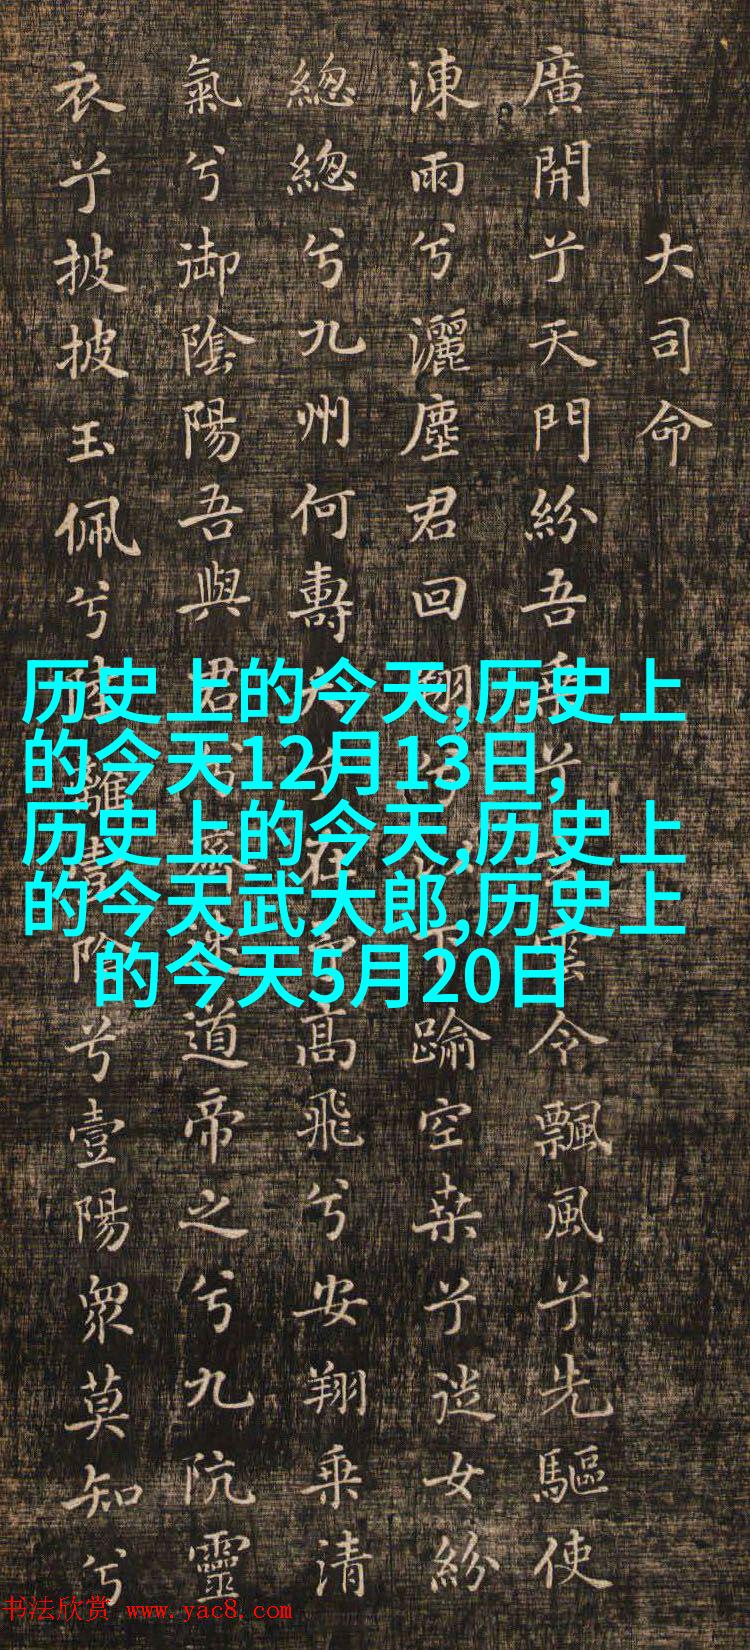 大司命
廣開兮天門紛吾乘兮玄雲令飄風兮先驅使
涷雨兮灑塵君回翔兮以下踰空桒兮從女紛
總總兮九州何壽夭兮在予高飛兮安翔乘清
氣兮御陰陽吾與君兮齊速道帝之兮九阬靈
衣兮披披玉佩兮陸離壹陰兮壹陽衆莫知兮
历史上的今天,历史上
的今天12月13日,
历史上的今天,历史上
的今天武大郎,历史上
的今天5月20日
书法欣赏 www.yac8.com